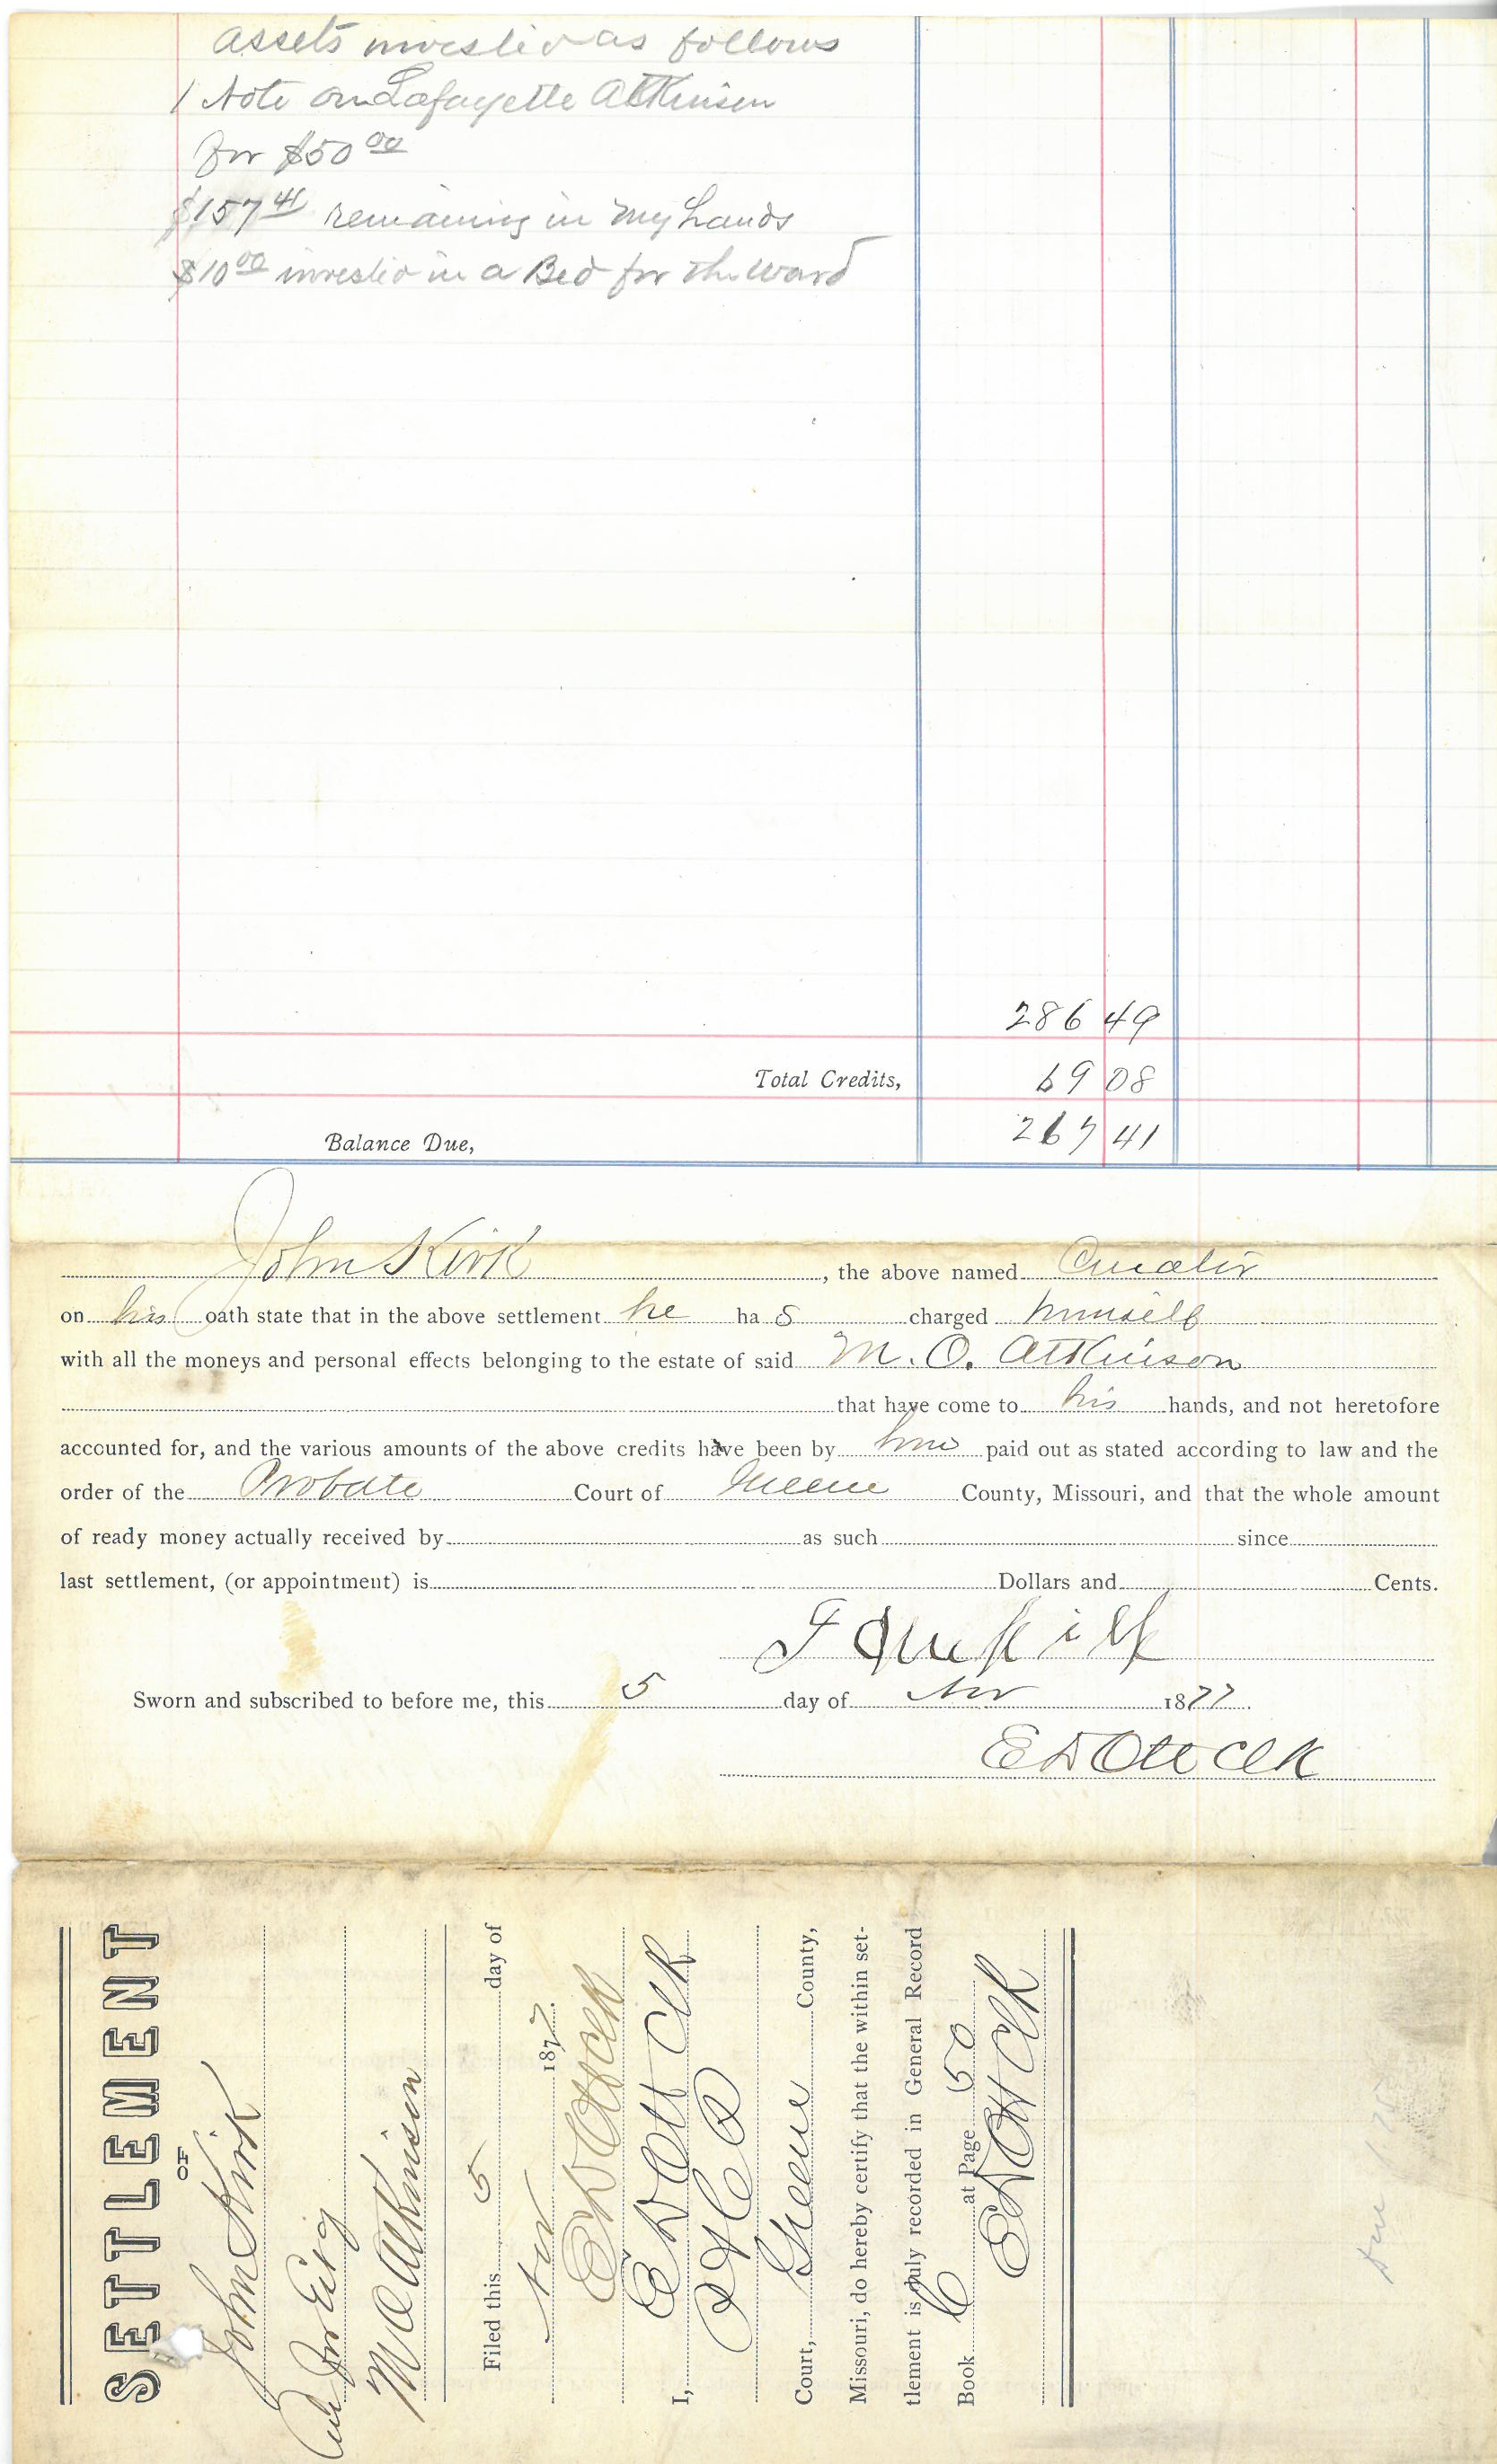 assets invested as follows
1 Note on Lafayette Atkinson
for $50 00
$157 41 remaining in my hands
$10 00 invested in a Bed for the ward
286 49
Total Credits, 69 08
Balance Due, 267 41
John Kirk, the above named Curator
on his oath state that in the above settlement he ha s charged himself
with all the moneys and personal effects belonging to the estate of said M. O. Atkinson
that have come to his hands, and not heretofore
accounted for, and the various amounts of the above credits have been by him paid out as stated according to law and the
order of the Probate Court of Greene County, Missouri, and that the whole amount
of ready money actually received by as such since
last settlement, (or appointment) is Dollars and Cents.
Sworn and subscribed to before me, this 5 day of Nov 1877.
E D Ott Clk
SETTLEMENT
OF
John Kirk
M O Atkinson
Filed this 5 day of
Nov 1877.
E D Ott Clk
I, E D Ott Clk
Court, Greene County,
Missouri, do hereby certify that the within set-
tlement is duly recorded in General Record
Book C at Page 50
E D Ott Clk